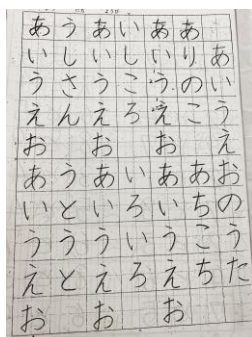 あいうえおのうた
ありのこ　あちこち
あいうえおあいうえお
いしころ　いろいろ
あいうえおあいうえお
うしさん　うとうと
あいうえおあいうえお